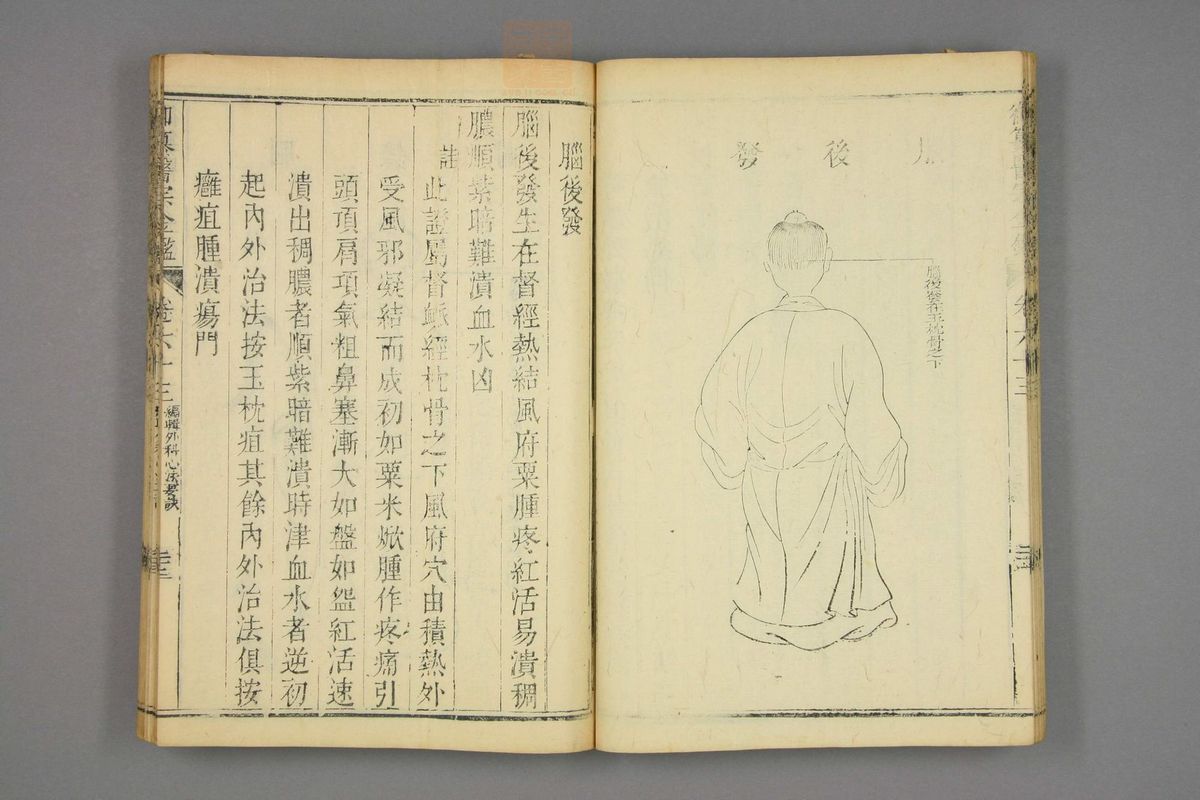 後發
腦後發在玉枕骨之下
卷六十三
腦後發
腦後發生在督經熱結風府粟腫疼紅活易潰稠
膿順紫暗難潰血水凶
註此證屬督脈經枕骨之下風府穴由積熱外
受風邪凝結而成初如粟米焮腫作疼痛引
頭頂肩項氣粗鼻塞漸大如盤如盌紅活速
潰出稠膿者順紫暗難潰時津血水者逆初
起內外治法按玉枕疽其餘內外治法俱按
癰疽腫潰瘍門
御纂醫宗金鑑 卷六十三 編輯外科心法要訣